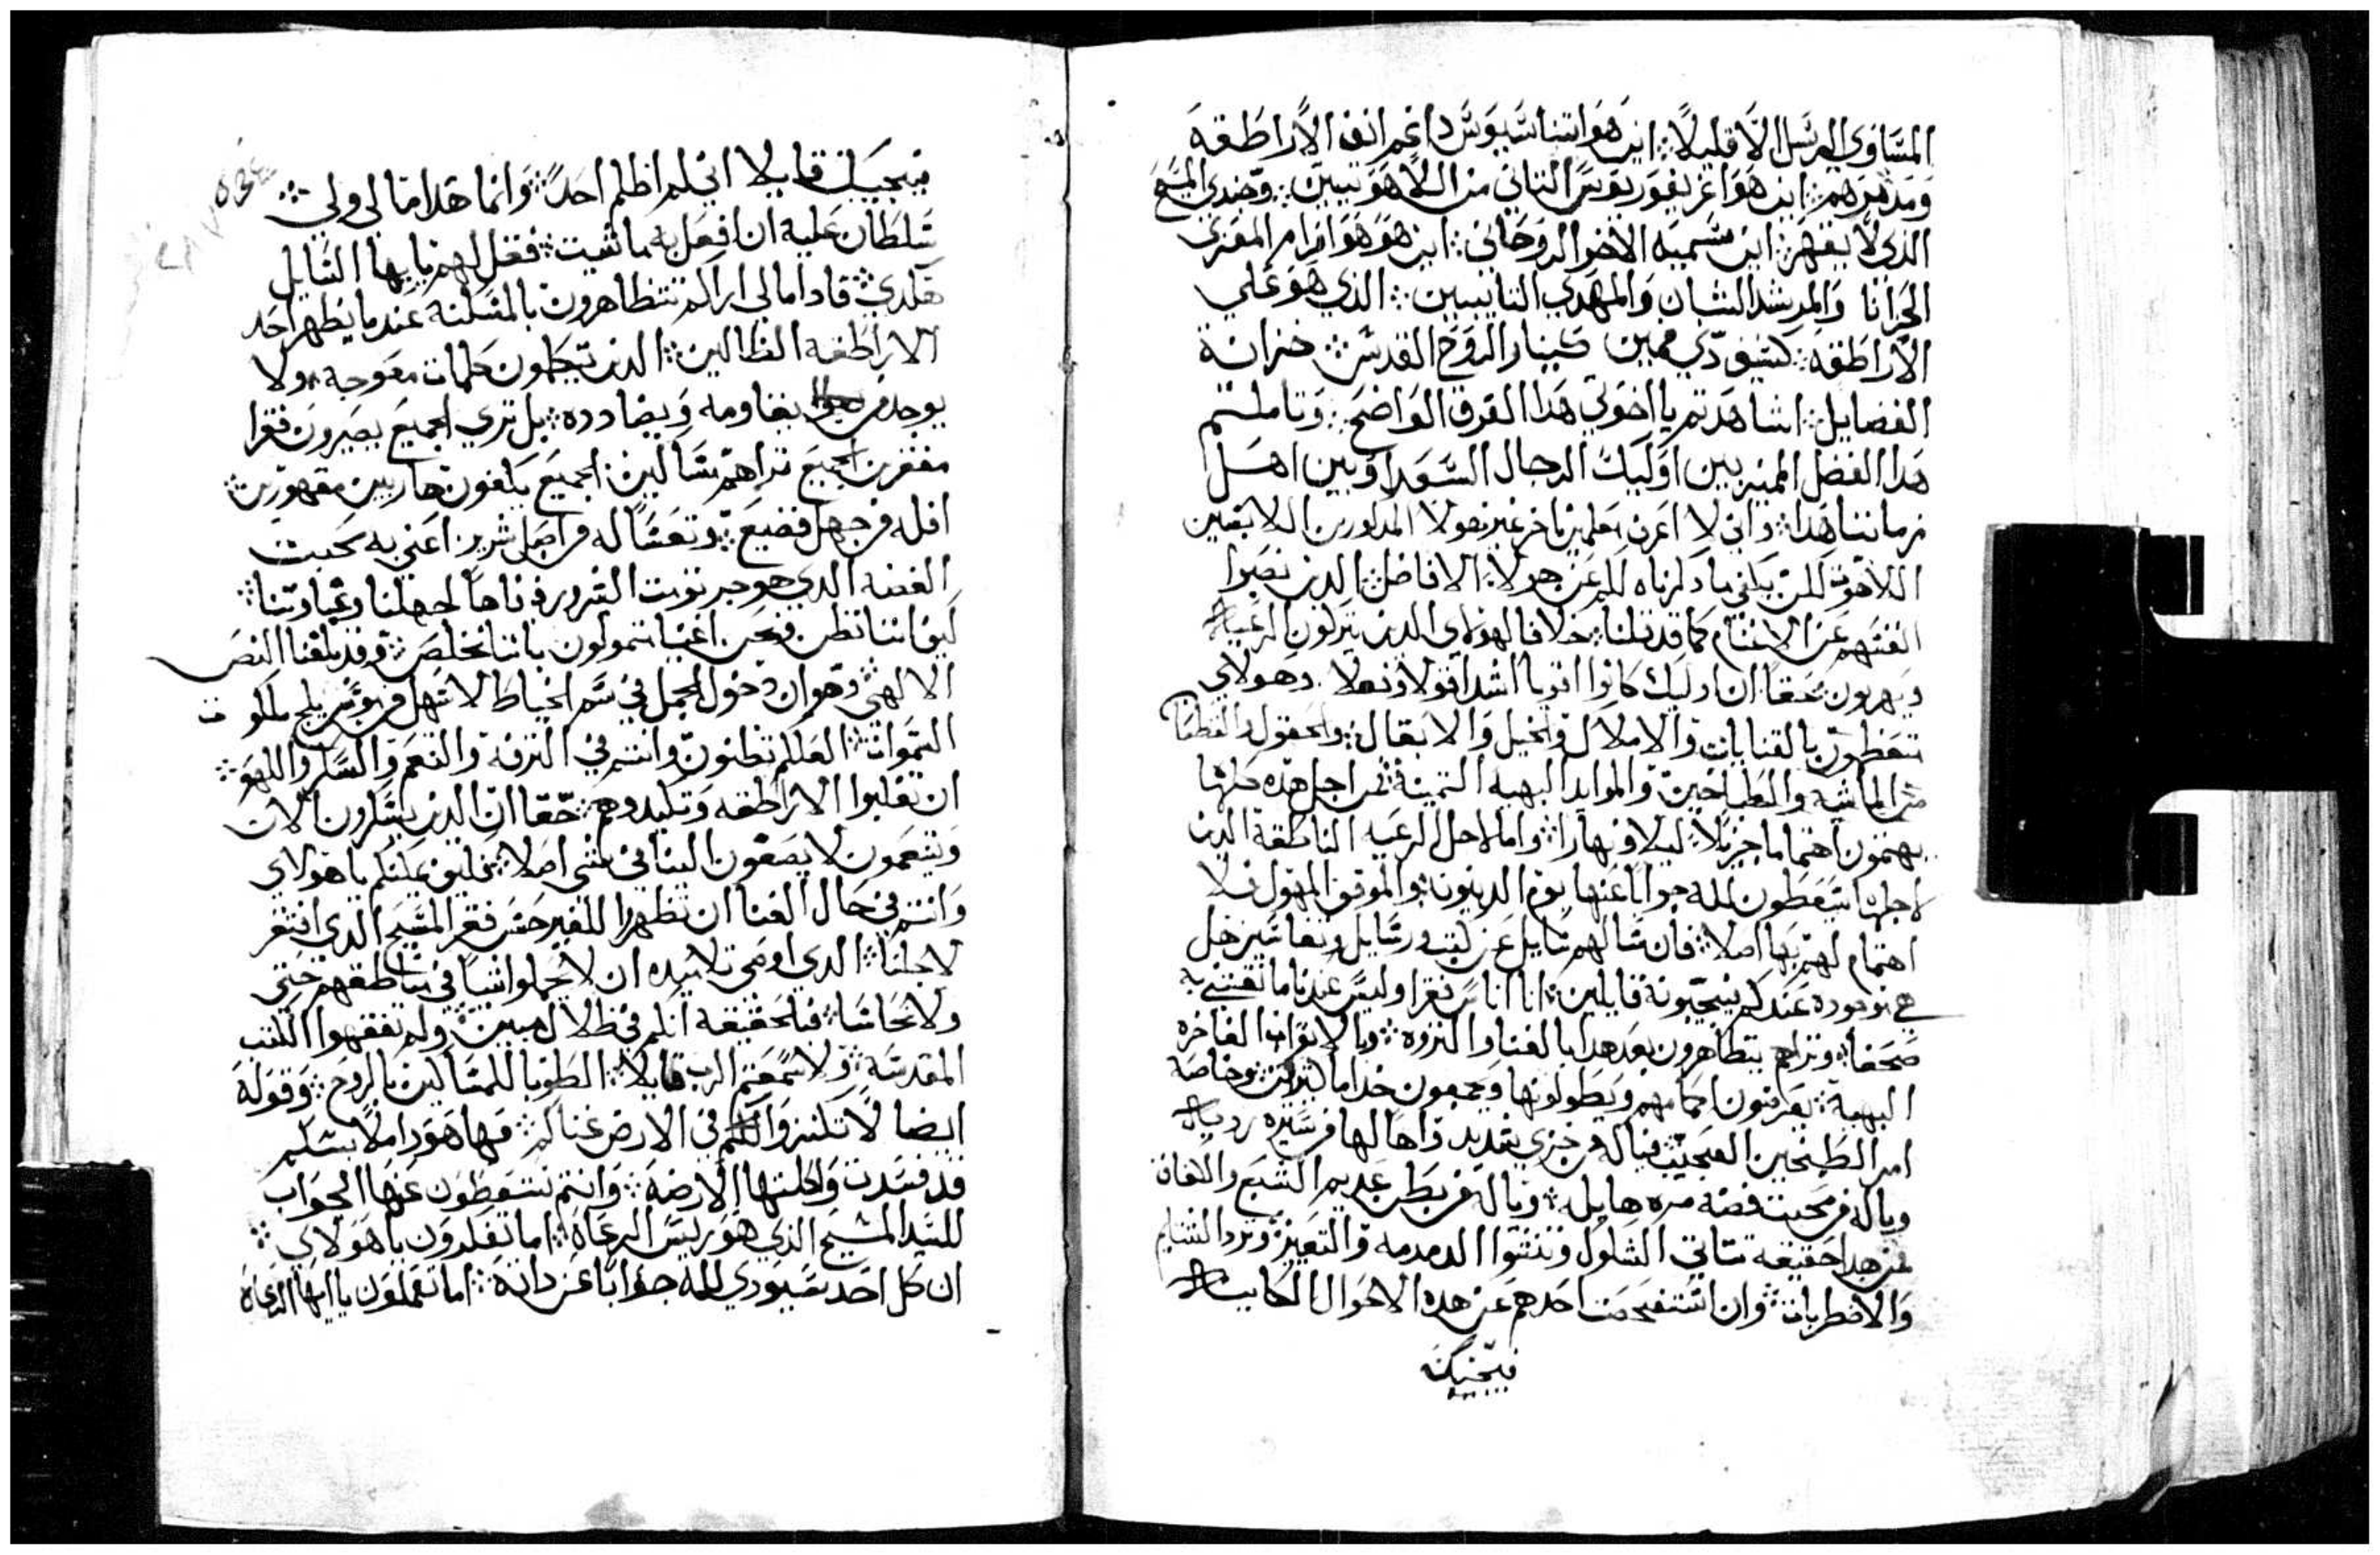 المساوي الرسل الا قليلاً ⁘ اين هو اتناسيوس داغم انف الاراطقه
ومدمرهم ⁘ اين هو اغريغوريوس التاني من اللاهوتيين ⁘ وجندي المسيح
الذي لا يقهر ⁘ اين سميه الاخر الروحاني ⁘ اين هو هو افرام المغزي
الحزانا والمرشد الشبان والمهدي التايبين ⁘ الذي هو علي
الاراطقه كسيف دي فمين كينار الروح القدس ⁘ خزانة
الفضايل ⁘ اشاهدتم يا اخوتي هدا الفرق الواضح ⁘ وتاملتم
هدا الفضل المميز بين اوليك الرجال السعدا وبين اهل
زماننا هدا ⁘ واني لا اعرف معلمين اخر غير هولا المدكورين اللايقين
اللاهوت لكن يكفي ما دكرناه لكم عن هولاء الافاضل ⁘ الدين نصبوا
انفسهم عن الاغنام كما قد قلنا ⁘ خلافا لهولاي الدين يتركون الرعيه
ويهربون حقا ان اوليك كانوا اقويا اشدا قولا وفعلا وهولاي
تتعظمون بالقنايات والاملاك والخيل والابغال ⁘ والحقول والقطعان
من الماشيه والطباخين والموايد البهيه التمينة فمن اجل هده كلها
يهتمون اهتماما جزيلاً ليلا ونهارا ⁘ واما لاجل الرعيه الناطقة الدين
لاجلها سيعطون لله جوابا عنها يوم الدينونه والموقف المهول فلا
اهتمام لهم بها اصلا ⁘ فان سالهم سايل عن كتب ورسايل وتفاسير هل
هي موجوده عندكم فيجيبونه قايلين ⁘ انا اناس فقرا وليس عندنا ما نقتني به
صحفا ⁘ وتراهم يتظاهرون بعد هدا بالغنا والتروه ⁘ وبالاتواب الفاخره
البهية ⁘ يعرضون اكمامهم ويطولونها ويجمعون خداما كتيرين وخاصة
امر الطبخين العجيب ⁘ فياله من خزي شديد واها لها من سيره رديه
وياله من محبت فضه مره هايله ⁘ وياله من بطن عديم الشبع والكفاف
فمن هدا حقيقه تتاتي الشكوك وتنشوا الدمدمه والتعيير وتردا الشتايم
والاضطربات ⁘ وان استفحصت احدهم عن هده الاحوال الكاينه
فيجيبك
فيجيبك قايلا اني لم اظلم احداً ⁘ وانما هدا مالي ولي ⁘
سلطان عليه ان افعل به ما شيت ⁘ فقل لهم يا ايها السايل
هكدي ⁘ فادا مالي اراكم تتظاهرون بالمسكنة عندما يظهر احد
الاراطقه الظالين ⁘ الدين يتكلمون كلمات معوجة ⁘ ولا
يوجد من يقاومه ويضادده ⁘ بل تري الجميع يصيرون فقرا
مفتقرين الجميع تراهم مساكين ⁘ الجميع يلفون هاربين مقهورين ⁘
افله من جهل فضيع ⁘ وتعسا له من اصل شرير ⁘ اعني به محبت
الفضه الدي هو جرتومت الشرور فواها لجهلنا وغباوتنا ⁘
كيف اننا نظن ونحن اغنيا متمولون باننا نخلص ⁘ وقد بلغنا النص
الالهي ⁘ وهو ان دخول الجمل في سم الخياط لاسهل من موسر يلج ملكوت
السموات ⁘ العلكم تظنون وانتم في الترفه والتنعم والسكر واللهو ⁘
ان تغلبوا الاراطقه وتكيدوهم ⁘ حقا ان الدين يسكرون الان
ويتنعمون لا يصغون الينا في شي اصلا ⁘ يليق عليكم يا هولاي
وانتم في حال الغنا ان تظهرا للغير حسن فقر المسيح الدي افتقر
لاجلنا ⁘ الدي اوصي تلاميده ان لا يحملوا شيا في مناطقهم حتي
ولا نحاسا ⁘ فبالحقيقه انكم في ظلال مبين ⁘ ولم تفقهوا الكتب
المقدسة ⁘ ولا سمعتم الرب قايلا ⁘ الطوبا للمساكين بالروح ⁘ وقوله
ايضا لا تكنزوا لكم في الارض غناكم ⁘ فها هو داملا بسلكم
قد فسدت واكلتها الارضة ⁘ وانتم ستعطون عنها الجواب
للسيد المسيح الذي هو ريس الرعاة ⁘ اما تفكرون يا هولاي ⁘
ان كل احد سيودي لله جوابا عن داته ⁘ اما تعملون يا ايها الرعاة